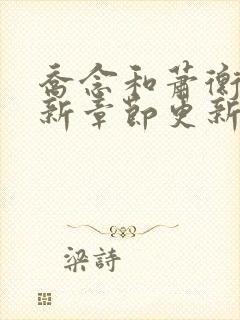 喬念和蕭衡
新章節更新
梁詩